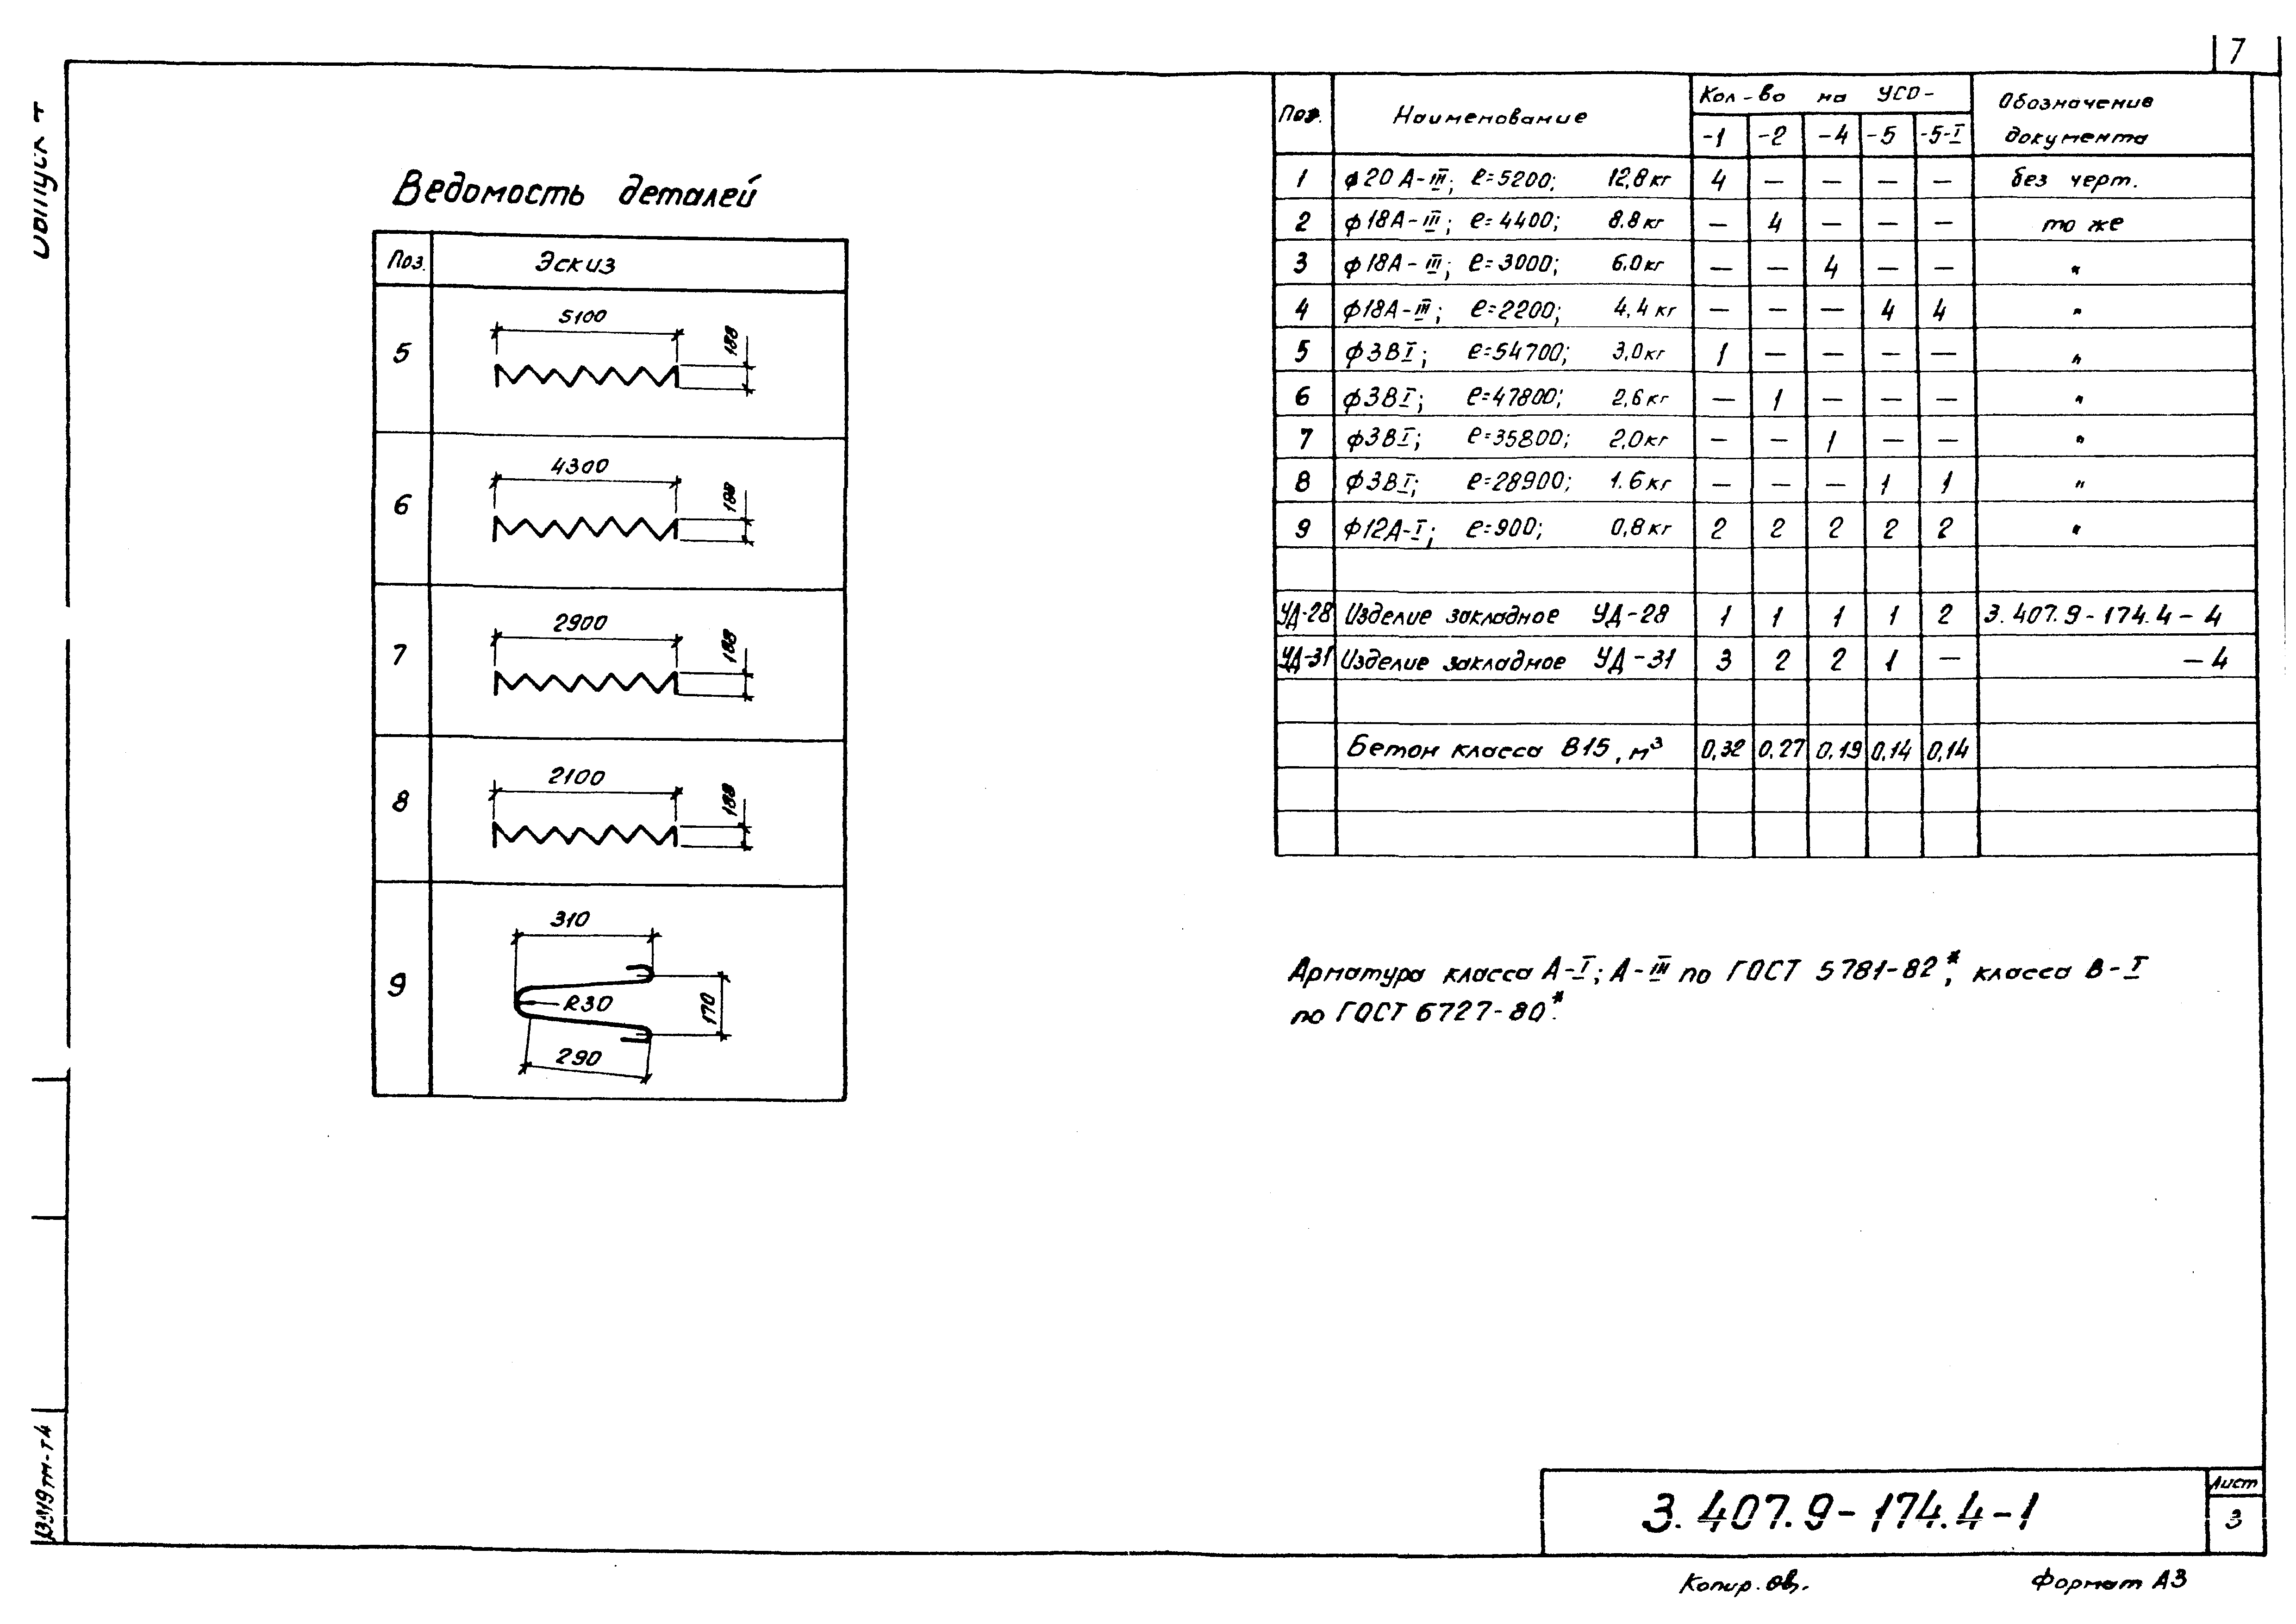 7
Выпуск 4
Ведомость деталей
Поз. Эскиз
5 5100 188
6 4300 188
7 2900 188
8 2100 188
9 310 R30 170 290
Поз. Наименование Кол-во на УСО- Обозначение документа
-1 -2 -4 -5 -5-I
1 ф20 А-III; ℓ=5200; 12,8кг 4 — — — — без черт.
2 ф18А-III; ℓ=4400; 8.8кг — 4 — — — то же
3 ф18А-III; ℓ=3000; 6.0кг — — 4 — — "
4 ф18А-III; ℓ=2200; 4,4кг — — — 4 4 "
5 ф3ВI; ℓ=54700; 3,0кг 1 — — — — "
6 ф3ВI; ℓ=47800; 2,6кг — 1 — — — "
7 ф3ВI; ℓ=35800; 2,0кг — — 1 — — "
8 ф3ВI; ℓ=28900; 1.6кг — — — 1 1 "
9 ф12А-I; ℓ=900; 0,8кг 2 2 2 2 2 "
УД-28 Изделие закладное УД-28 1 1 1 1 2 3.407.9-174.4-4
УД-31 Изделие закладное УД-31 3 2 2 1 — -4
Бетон класса В15, м³ 0,32 0,27 0,19 0,14 0,14
Арматура класса А-I; А-III по ГОСТ 5781-82*, класса В-I
по ГОСТ 6727-80*.
3.407.9-174.4-1
Лист
3
Копир.
Формат А3